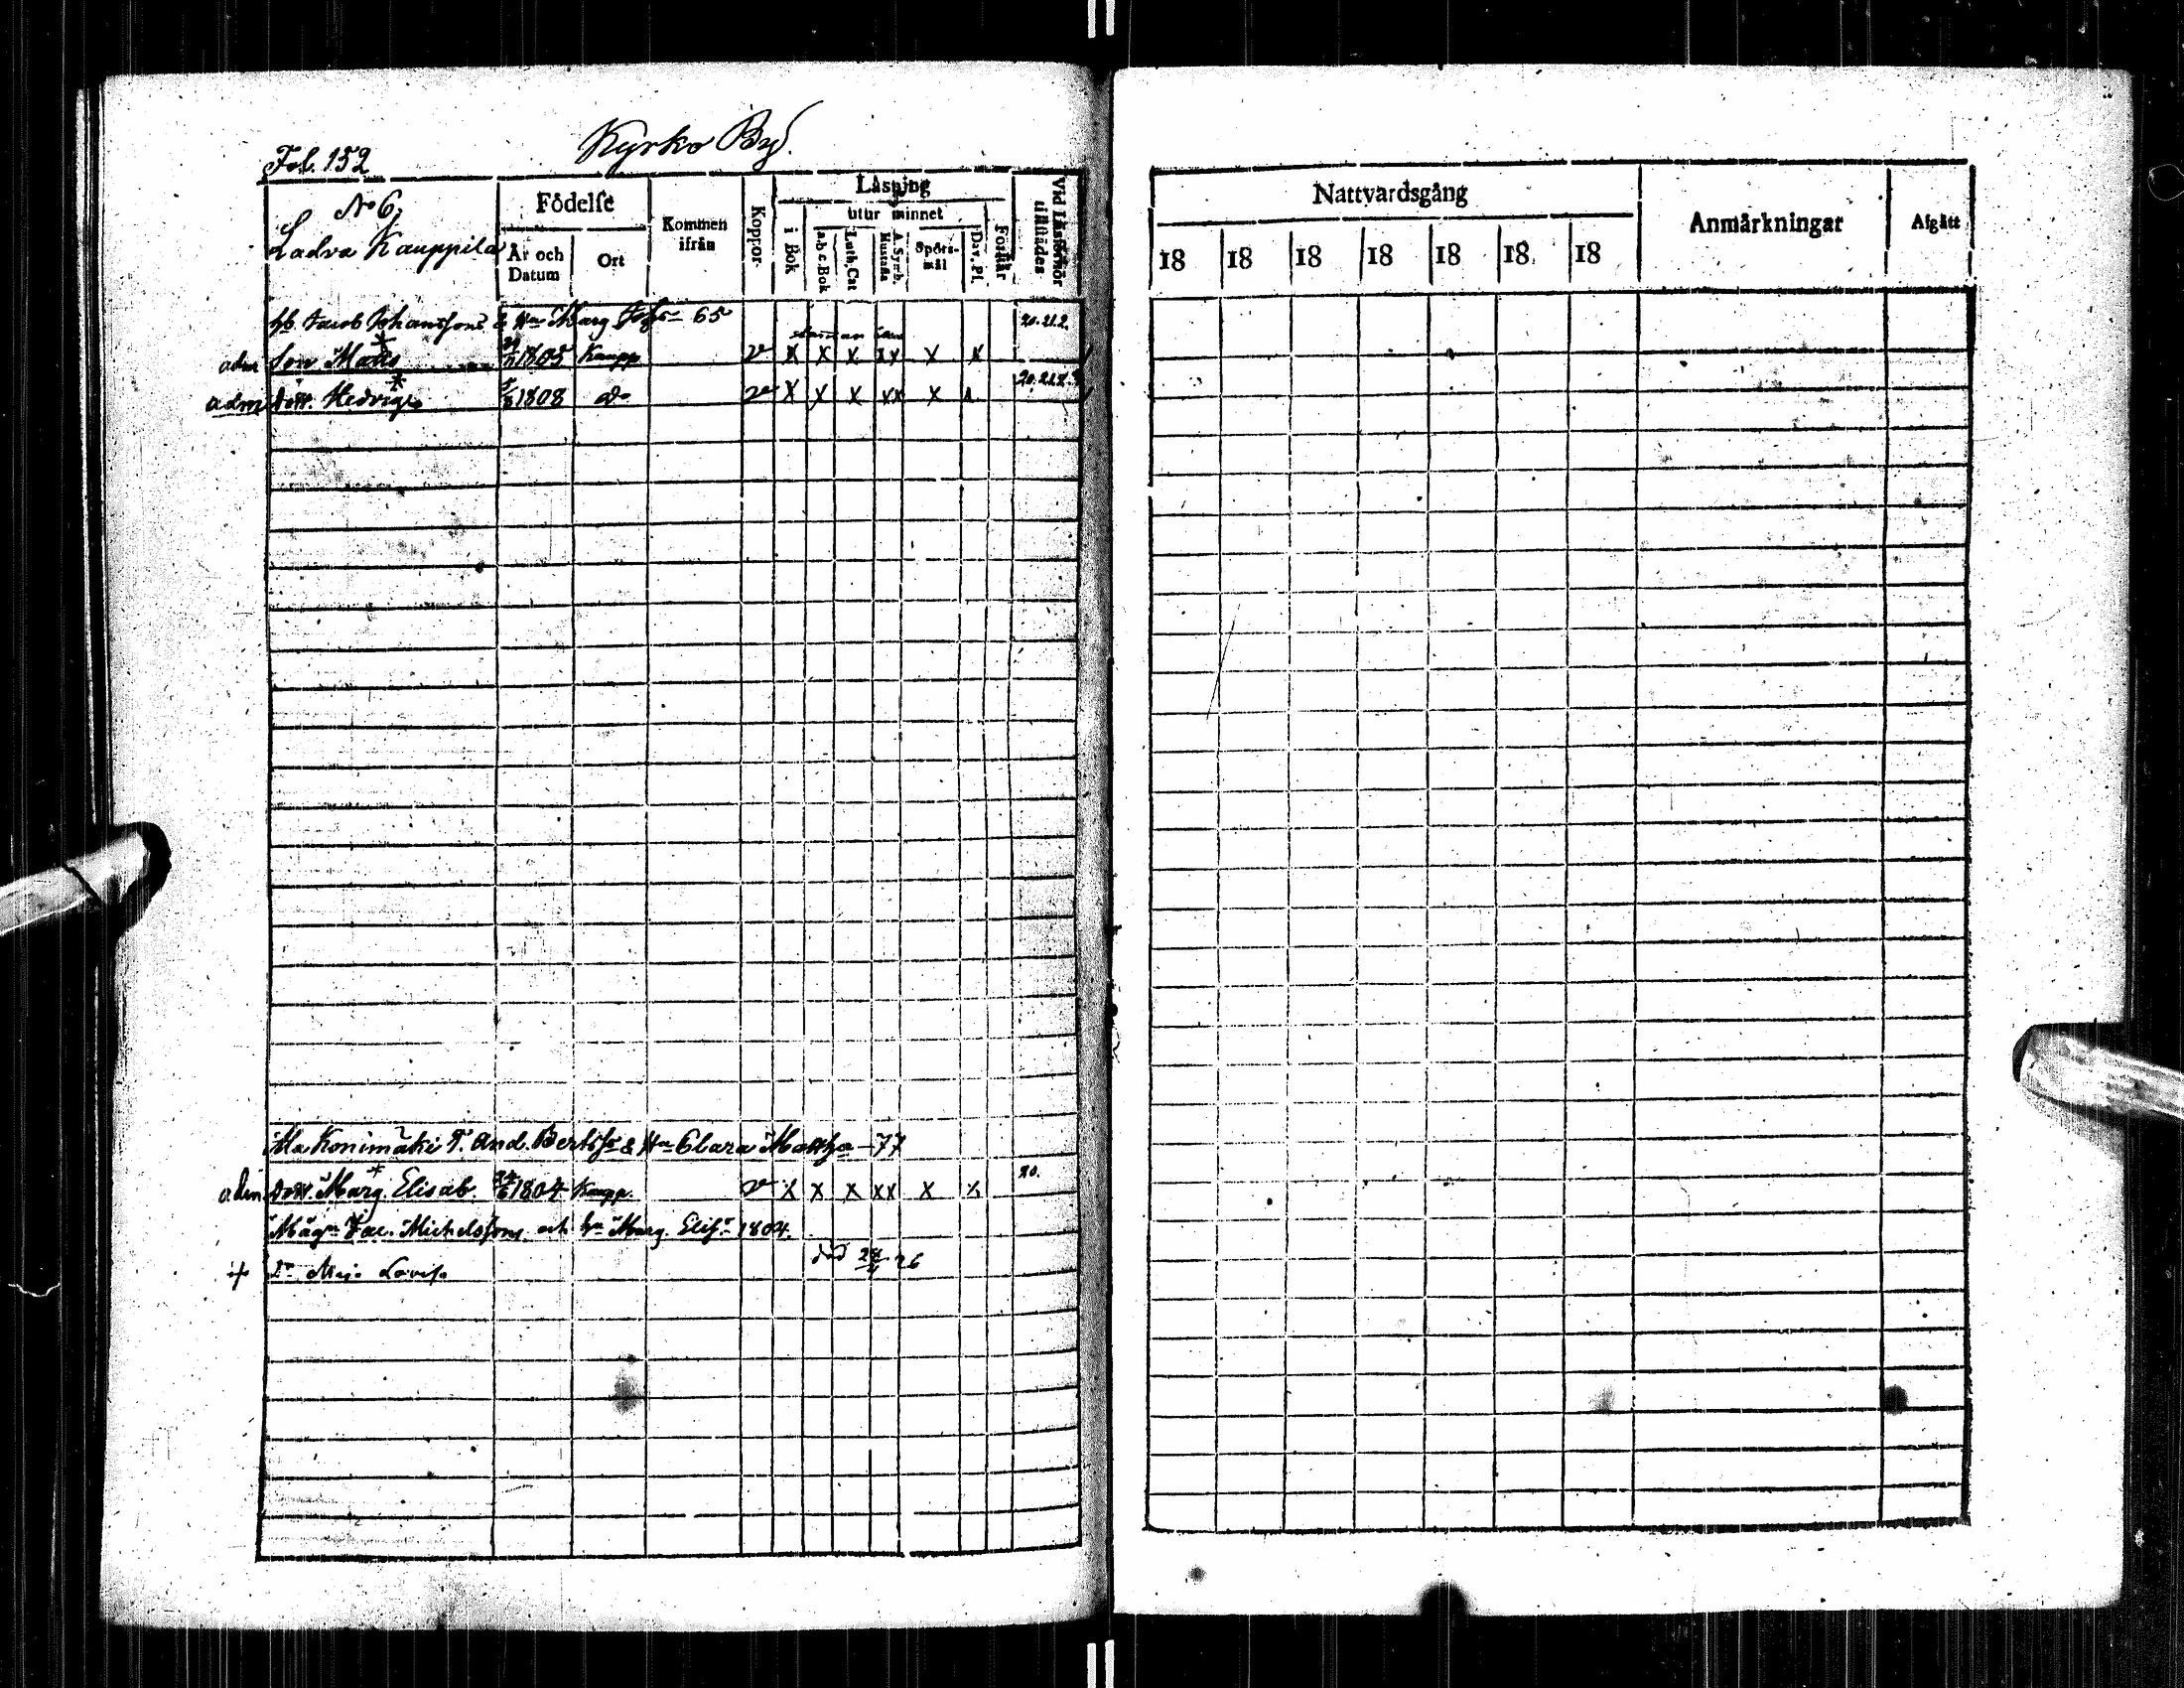 Kyrko By.
Fol. 152
No 6,
Ladva Kauppila
Födelse
År och Datum
Ort
Kommen ifrån
Koppor
Läsning
i Bok
utur minnet
a.b.c.Bok
Luth. Cat
A. Symb. Hustafla
Spörs-mål
Dav. Pl.
Förstår
Vid Läseförhör tillstädes
hb. Jacob Johanssons & Hu Marg 65 20.21.2.
adm Son Matts 1805 Kaupp. v x x x xx x x
adm Dott. Hedvig 1808 do v x x x xx x x 20.21.2.
Ma Konimäki T. And. Bertss & Hu Clara Matts 77
adm Dott. Marg. Elisab. 24/6 1804 Kaupp. v x x x xx x x 20.
Mågn Jac. Michelssons och hu Marg. Elis. 1804.
+ Dr Maja Lovisa död 26
Nattvardsgång
Anmärkningar
Afgått
18 18 18 18 18 18 18